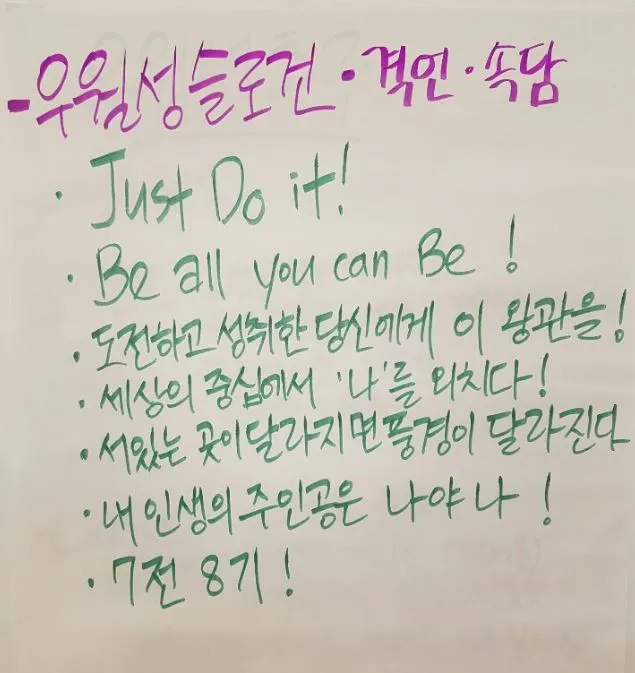 -우월성슬로건·격언·속담
· Just Do it!
· Be all you can Be !
· 도전하고 성취한 당신에게 이 왕관을!
· 세상의 중심에서 '나'를 외치다!
· 서있는 곳이달라지면풍경이 달라진다
· 내 인생의 주인공은 나야나 !
· 7전 8기!